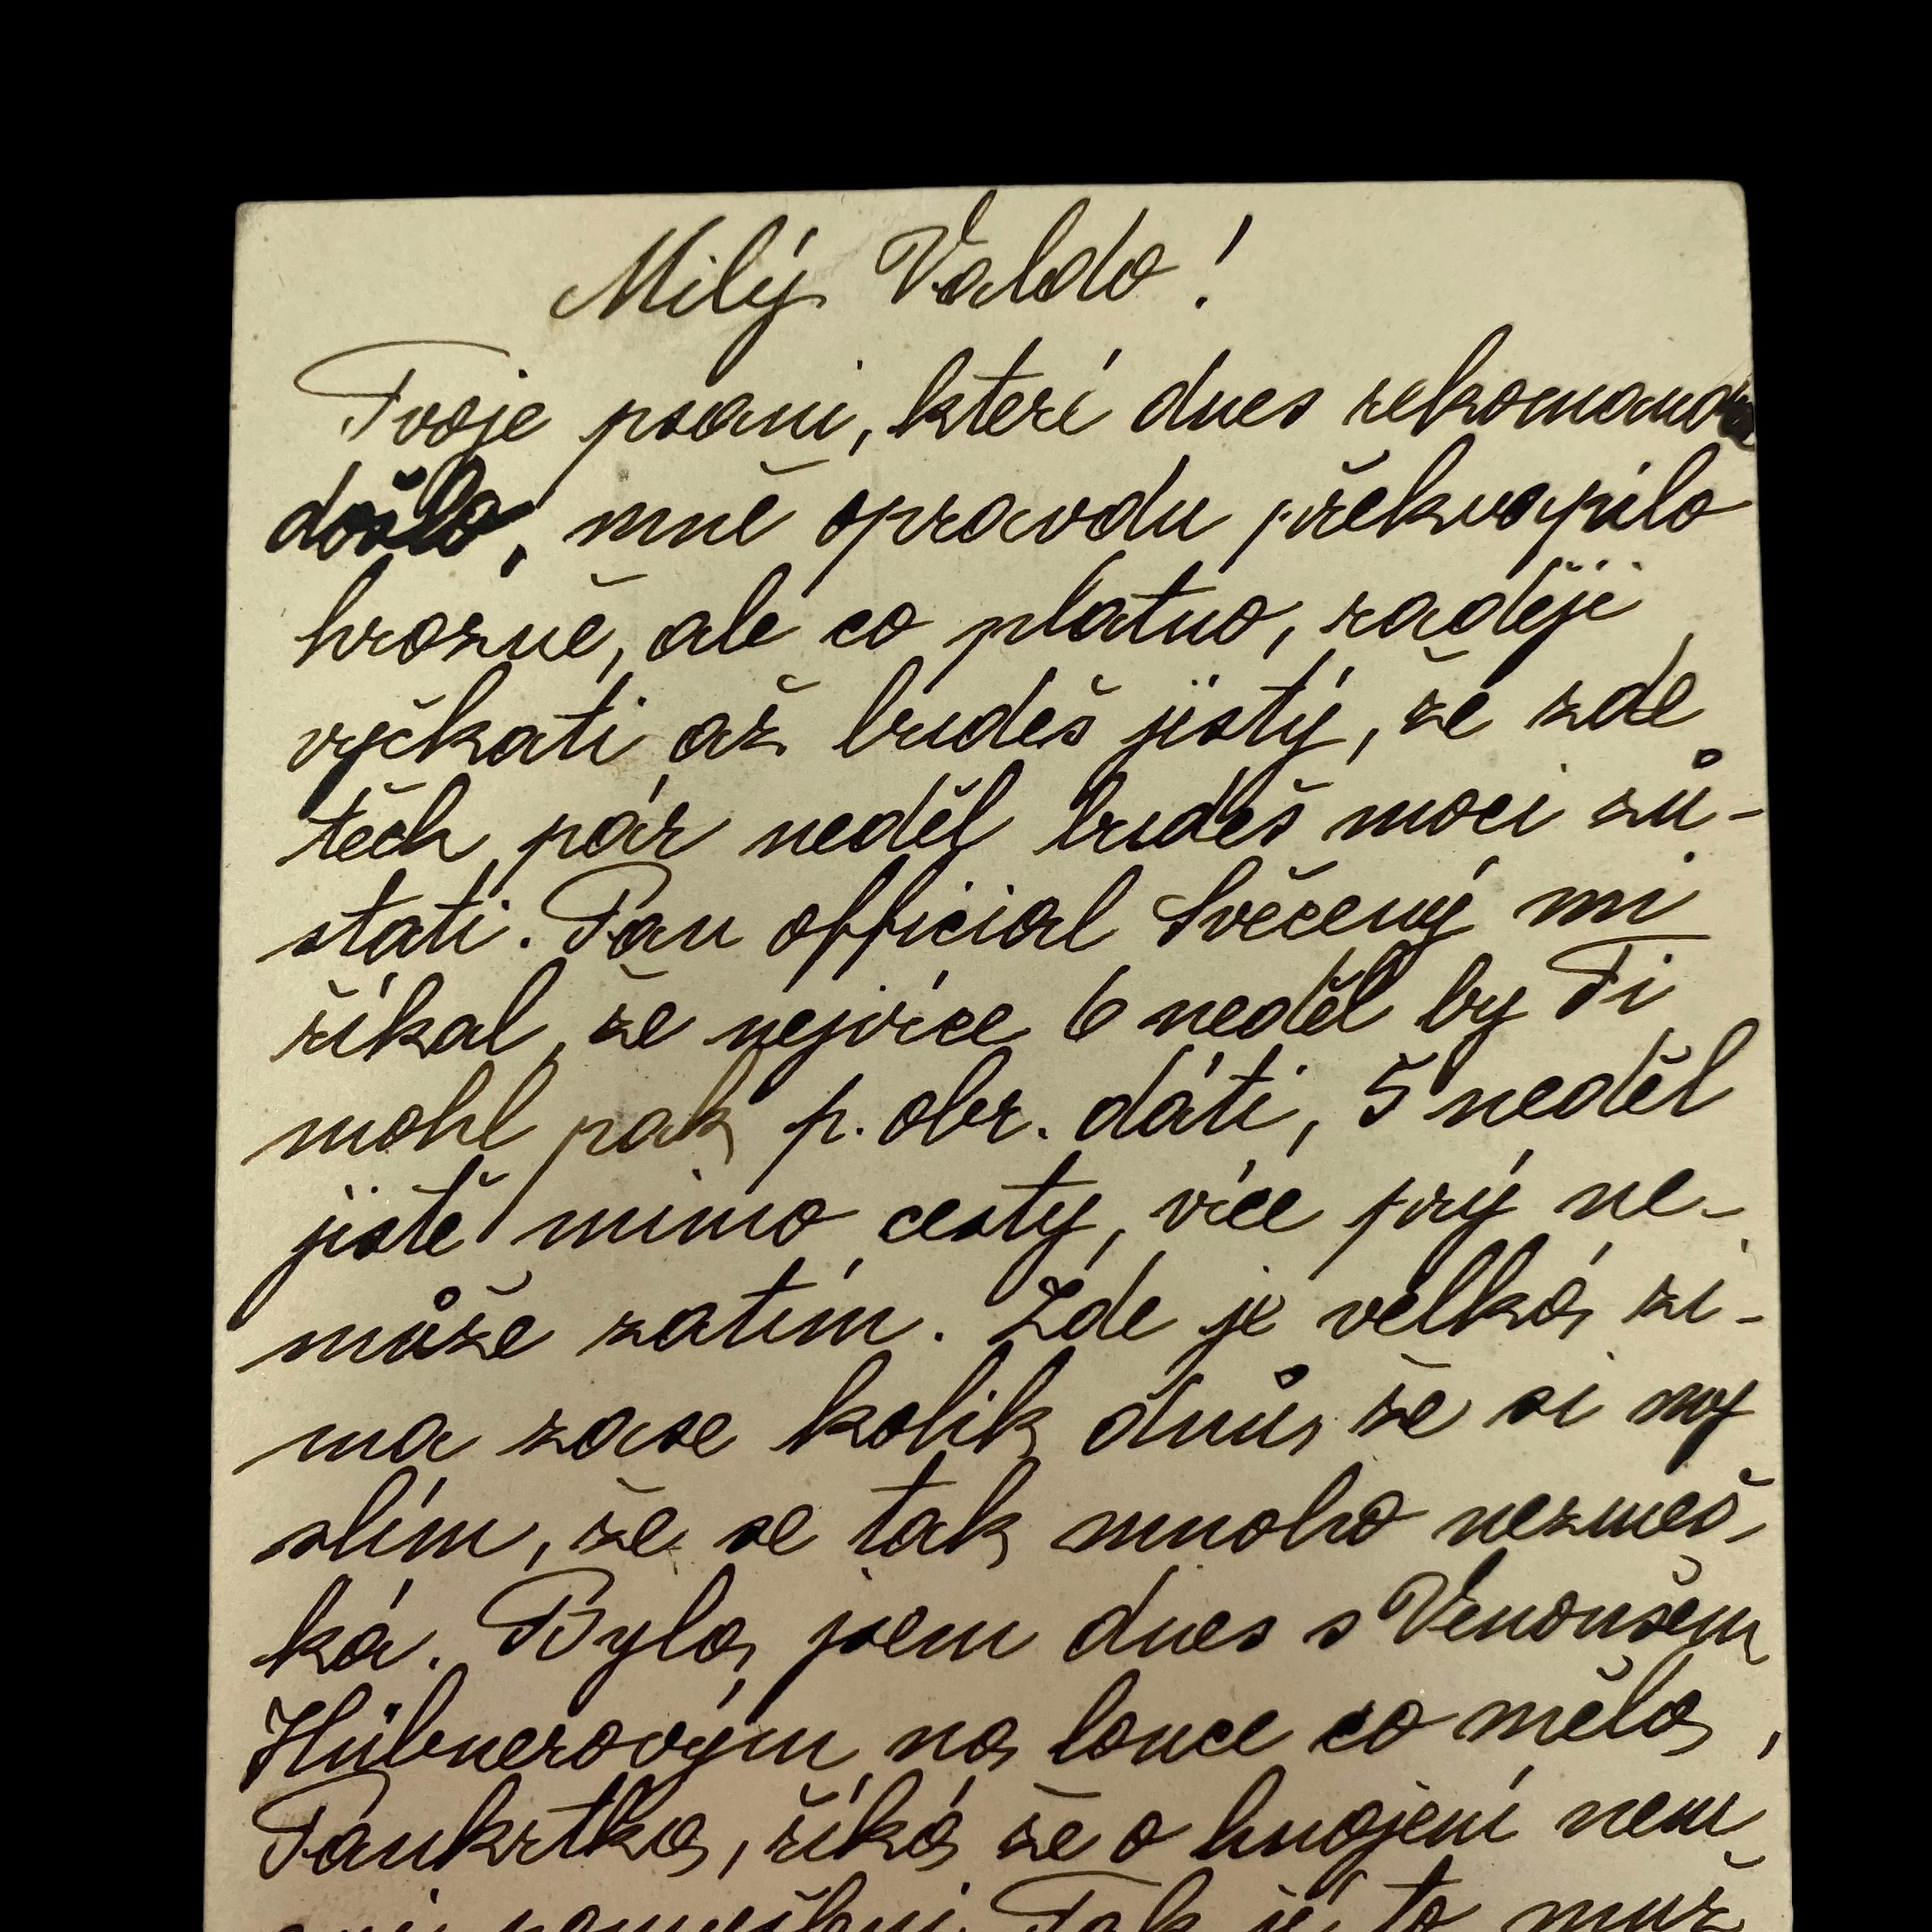 Milý Valdo!
Tvoje psani, které dnes
došlo, mně opravdu překvapilo
hrozně, ale co platno, raději
vyčkati až budeš jistý, že zde
těch pár neděl budeš moci zů-
stati. Pan official Svěcený mi
říkal, že nejvíce 6 neděl by Ti
mohl pak p. obr. dáti, 5 neděl
jistě mimo cesty, více prý ne-
může zatím. Zde je velká zi-
ma zase kolik dnů, že si my
slím, že se tak mnoho nezmeš,
ká. Byla jsem dnes s Venoušem
Hübnerovým na louce co měla,
Pankrtka, říká že o hnojení nem
Tak je to